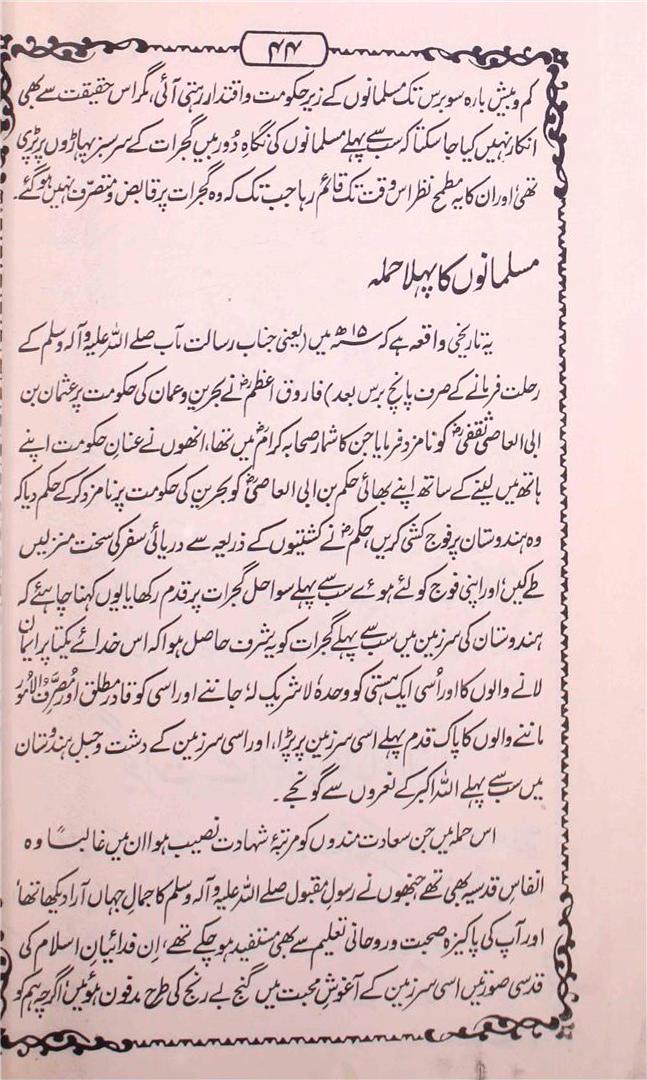 ۴۴
کم و بیش بارہ سو برس تک مسلمانوں کے زیر حکومت و اقتدار رہتی آئی، مگر اس حقیقت سے بھی
انکار نہیں کیا جا سکتا کہ سب سے پہلے مسلمانوں کی نگاہِ دُور بیں گجرات کے سرسبز پہاڑوں پر پڑی
تھی اور ان کا یہ مطمح نظر اس وقت تک قائم رہا جب تک کہ وہ گجرات پر قابض و متصرف نہیں ہو گئے۔
مسلمانوں کا پہلا حملہ
یہ تاریخی واقعہ ہے کہ ۱۵ھ میں (یعنی جناب رسالت مآب صلے اللہ علیہ وآلہ وسلم کے
رحلت فرمانے کے صرف پانچ برس بعد) فاروق اعظمؓ نے بحرین و عمان کی حکومت پر عثمان بن
ابی العاصی ثقفیؓ کو نامزد فرمایا جن کا شمار صحابہ کرامؓ میں تھا، انھوں نے عنانِ حکومت اپنے
ہاتھ میں لینے کے ساتھ اپنے بھائی حکم بن ابی العاصیؓ کو بحرین کی حکومت پر نامزد کر کے حکم دیا کہ
وہ ہندوستان پر فوج کشی کریں، حکمؓ نے کشتیوں کے ذریعہ سے دریائی سفر کی سخت منزلیں
طے کیں، اور اپنی فوج کو لئے ہوئے سب سے پہلے سواحل گجرات پر قدم رکھا یا یوں کہنا چاہئے کہ
ہندوستان کی سرزمین میں سب سے پہلے گجرات کو یہ شرف حاصل ہوا کہ اس خدائے یکتا پر ایمان
لانے والوں کا اور اُسی ایک ہستی کو وحدہٗ لا شریک لہٗ جاننے اور اسی کو قادر مطلق اور مُصَرِّفُ الامُور
ماننے والوں کا پاک قدم پہلے اسی سرزمین پر پڑا، اور اسی سرزمین کے دشت و جبل ہندوستان
میں سب سے پہلے اللہ اکبر کے نعروں سے گونجے۔
اس حملہ میں جن سعادت مندوں کو مرتبۂ شہادت نصیب ہوا ان میں غالباً وہ
انفاسِ قدسیہ بھی تھے جنھوں نے رسولِ مقبول صلے اللہ علیہ وآلہ وسلم کا جمال جہاں آرا دیکھا تھا
اور آپ کی پاکیزہ صحبت و روحانی تعلیم سے بھی مستفید ہو چکے تھے، اِن فدائیانِ اسلام کی
قدسی صورتیں اسی سرزمین کے آغوشِ محبت میں گنج بے رنج کی طرح مدفون ہوئیں، اگرچہ ہم کو